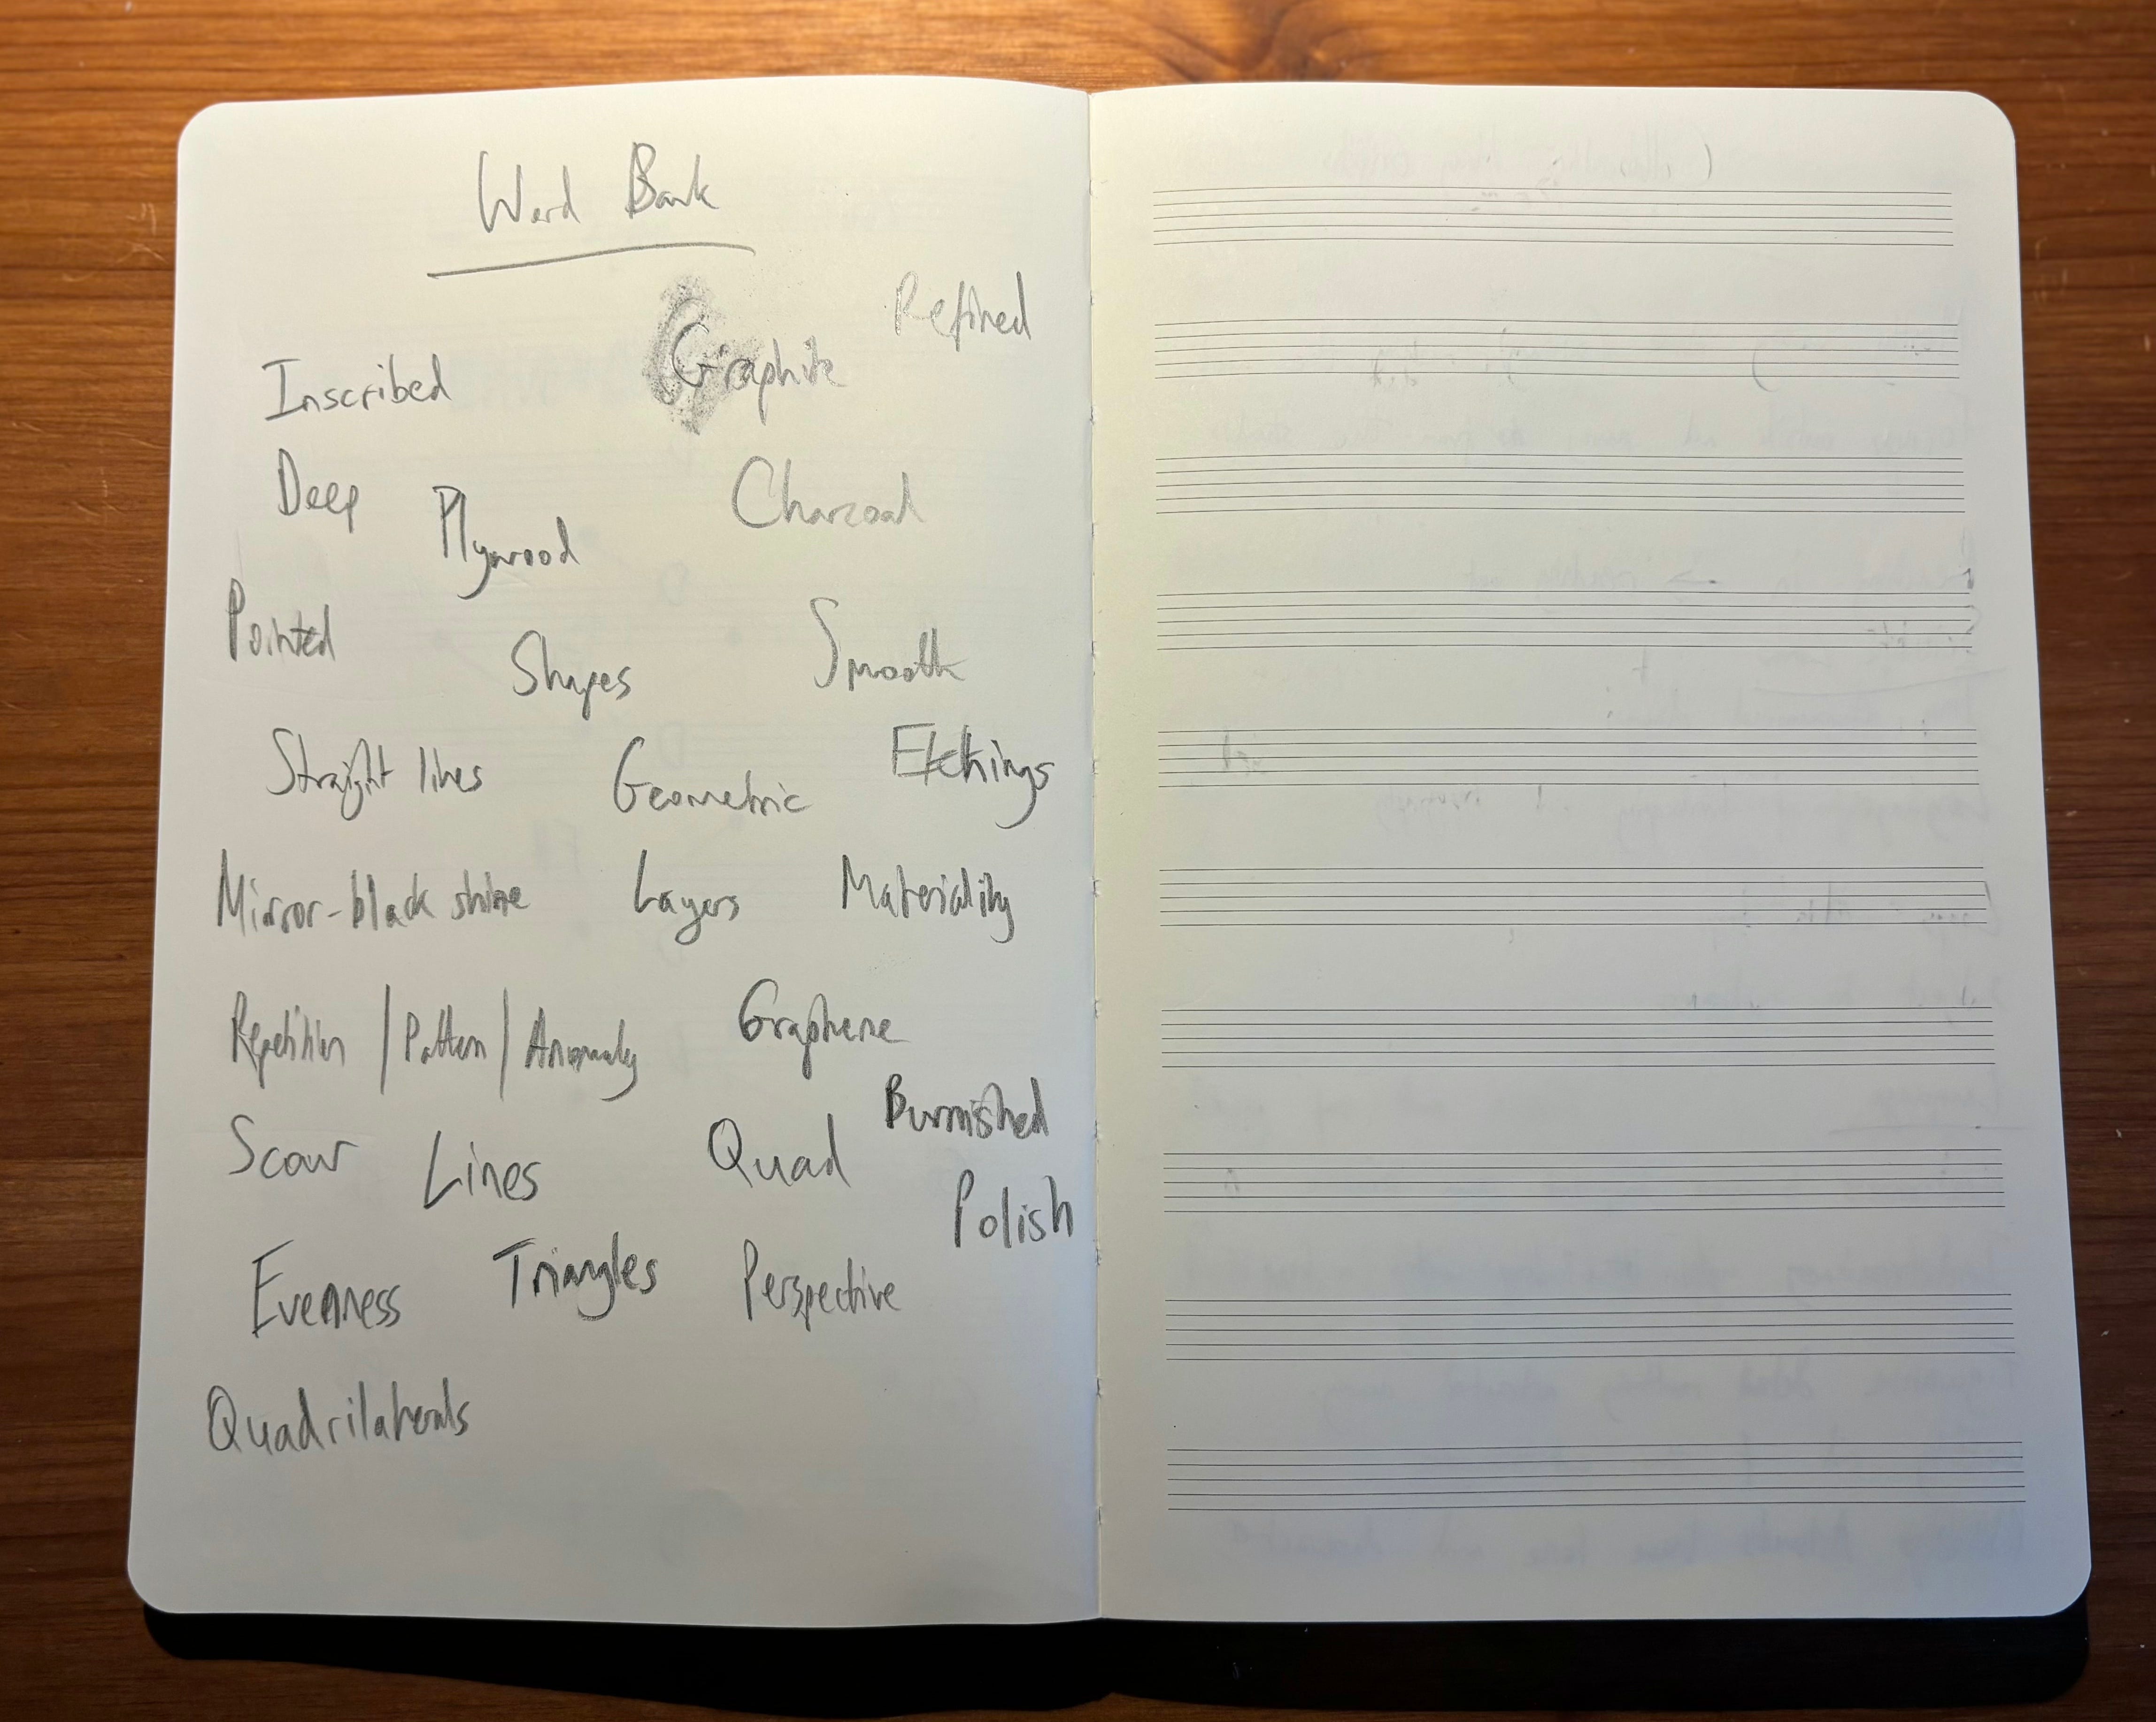 Word Bank
Refined
Inscribed Graphite
Deep Plywood Charcoal
Pointed Shapes Smooth
Straight lines Geometric Etchings
Mirror-black shine Layers Materiality
Repetition / Pattern / Anomaly Graphene
Burnished
Scour Lines Quad
Polish
Evenness Triangles Perspective
Quadrilaterals